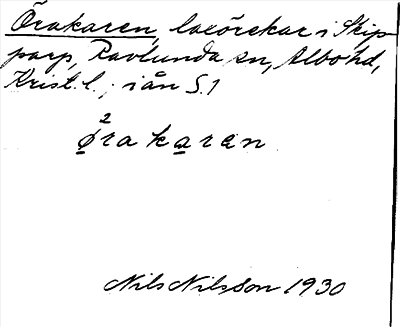 Örakaren, laxörekar i Skip-
parp, Ravlunda sn, Albo hd,
Krist. l.; i ån S. 1
2
ørakaren
Nils Nilsson 1930